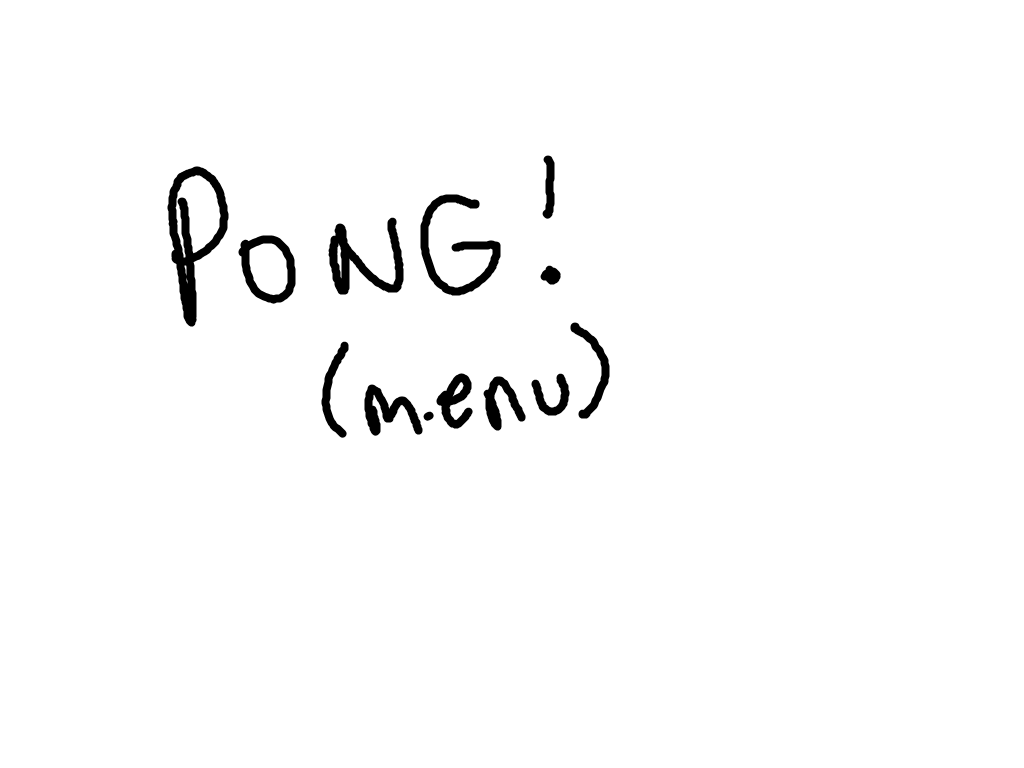 PONG!
(menu)